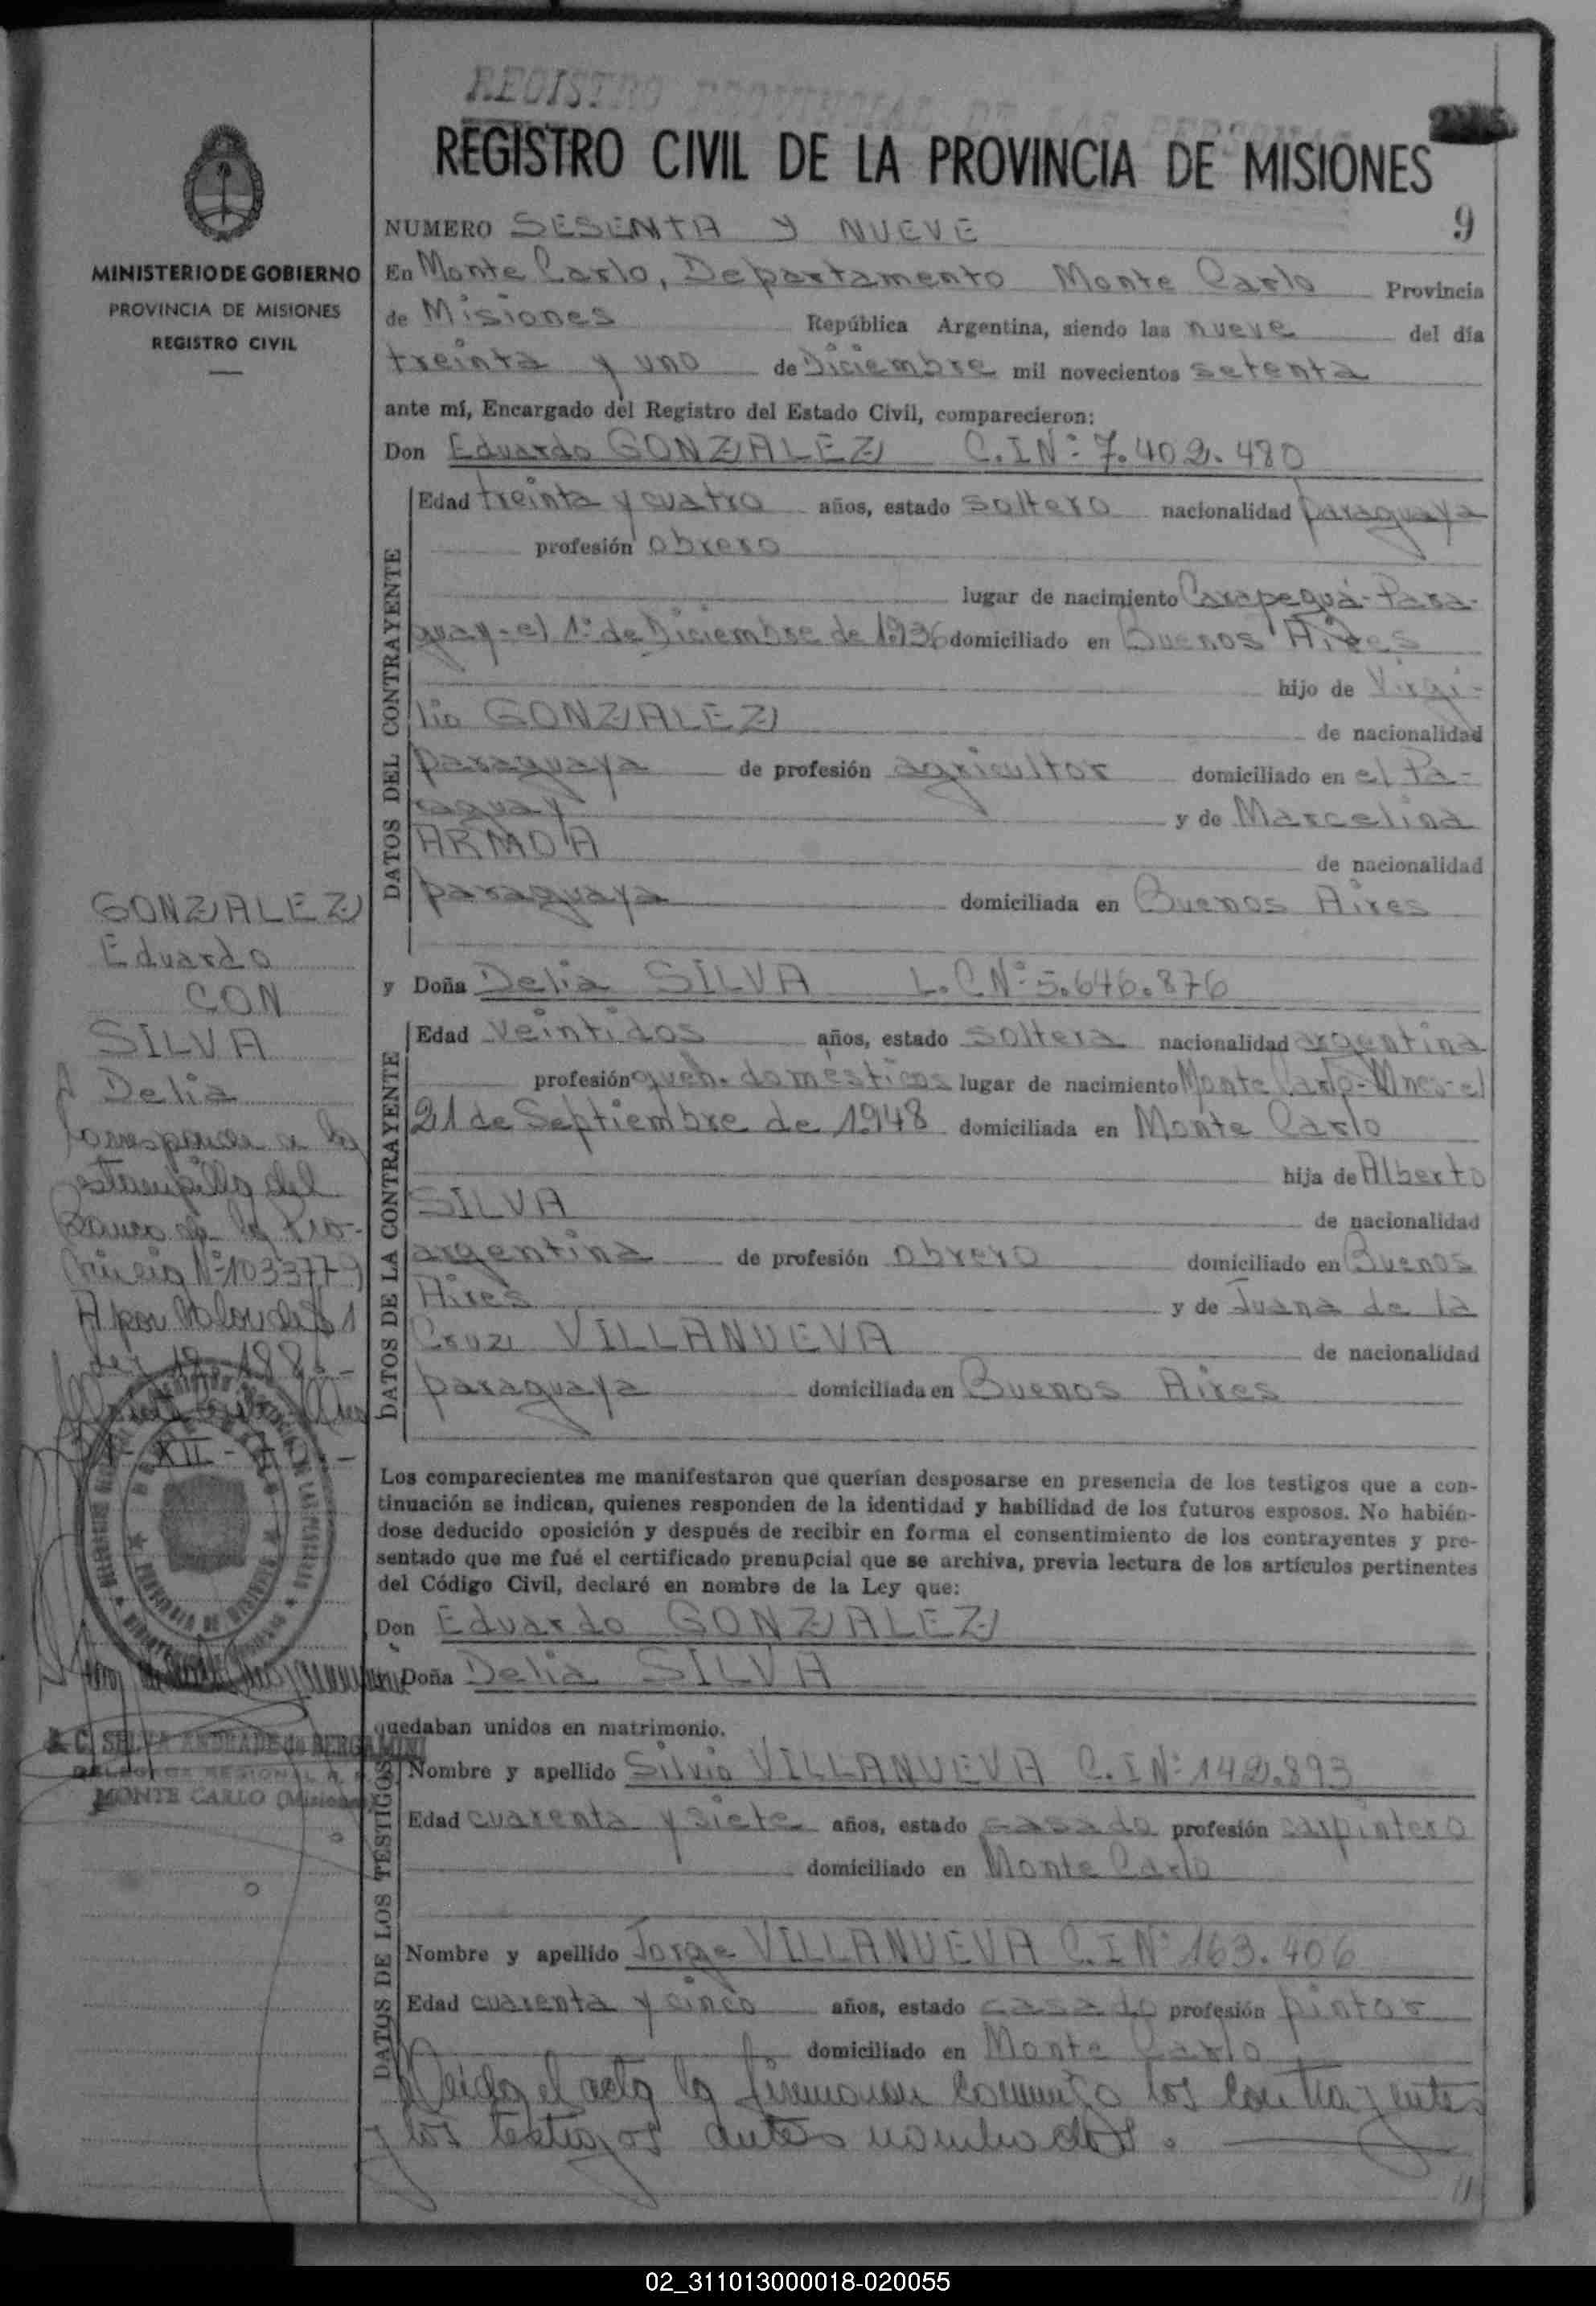 REGISTRO PROVINCIAL DE LAS PERSONAS
REGISTRO CIVIL DE LA PROVINCIA DE MISIONES
9
MINISTERIO DE GOBIERNO
PROVINCIA DE MISIONES
REGISTRO CIVIL
NUMERO SESENTA Y NUEVE
En Monte Carlo, Departamento Monte Carlo Provincia
de Misiones República Argentina, siendo las nueve del día
treinta y uno de Diciembre mil novecientos setenta
ante mí, Encargado del Registro del Estado Civil, comparecieron:
Don Eduardo GONZALEZ C.I.Nº 7.402.480
DATOS DEL CONTRAYENTE
Edad treinta y cuatro años, estado soltero nacionalidad paraguaya
profesión obrero
lugar de nacimiento Carapeguá-Para-
guay-el 1º de Diciembre de 1936 domiciliado en Buenos Aires
hijo de Virgi-
lio GONZALEZ de nacionalidad
paraguaya de profesión agricultor domiciliado en el Pa-
raguay y de Marcelina
ARMOA de nacionalidad
paraguaya domiciliada en Buenos Aires
y Doña Delia SILVA L.C.Nº 5.646.876
DATOS DE LA CONTRAYENTE
Edad veintidos años, estado soltera nacionalidad argentina
profesión queh. domésticos lugar de nacimiento Monte Carlo-Mnes-el
21 de Septiembre de 1948 domiciliada en Monte Carlo
hija de Alberto
SILVA de nacionalidad
argentina de profesión obrero domiciliado en Buenos
Aires y de Juana de la
Cruz VILLANUEVA de nacionalidad
paraguaya domiciliada en Buenos Aires
Los comparecientes me manifestaron que querían desposarse en presencia de los testigos que a con-
tinuación se indican, quienes responden de la identidad y habilidad de los futuros esposos. No habién-
dose deducido oposición y después de recibir en forma el consentimiento de los contrayentes y pre-
sentado que me fué el certificado prenupcial que se archiva, previa lectura de los artículos pertinentes
del Código Civil, declaré en nombre de la Ley que:
Don Eduardo GONZALEZ
y Doña Delia SILVA
quedaban unidos en matrimonio.
DATOS DE LOS TESTIGOS
Nombre y apellido Silvio VILLANUEVA C.I.Nº 142.893
Edad cuarenta y siete años, estado casado profesión carpintero
domiciliado en Monte Carlo
Nombre y apellido Jorge VILLANUEVA C.I.Nº 163.406
Edad cuarenta y cinco años, estado casado profesión pintor
domiciliado en Monte Carlo
Leida el acta la firmaron conmigo los contrayentes
y los testigos antes nombrados.
GONZALEZ
Eduardo
CON
SILVA
Delia
Corresponde a la
estampilla del
Banco de la Pro-
vincia Nº 1033779
A por valor de $ 1
XII - 70 -
PROVINCIA DE MISIONES
A. C. SELVA ANDRADE de BERGAMINI
DELEGADA REGIONAL
MONTE CARLO (Misiones)
02_311013000018-020055